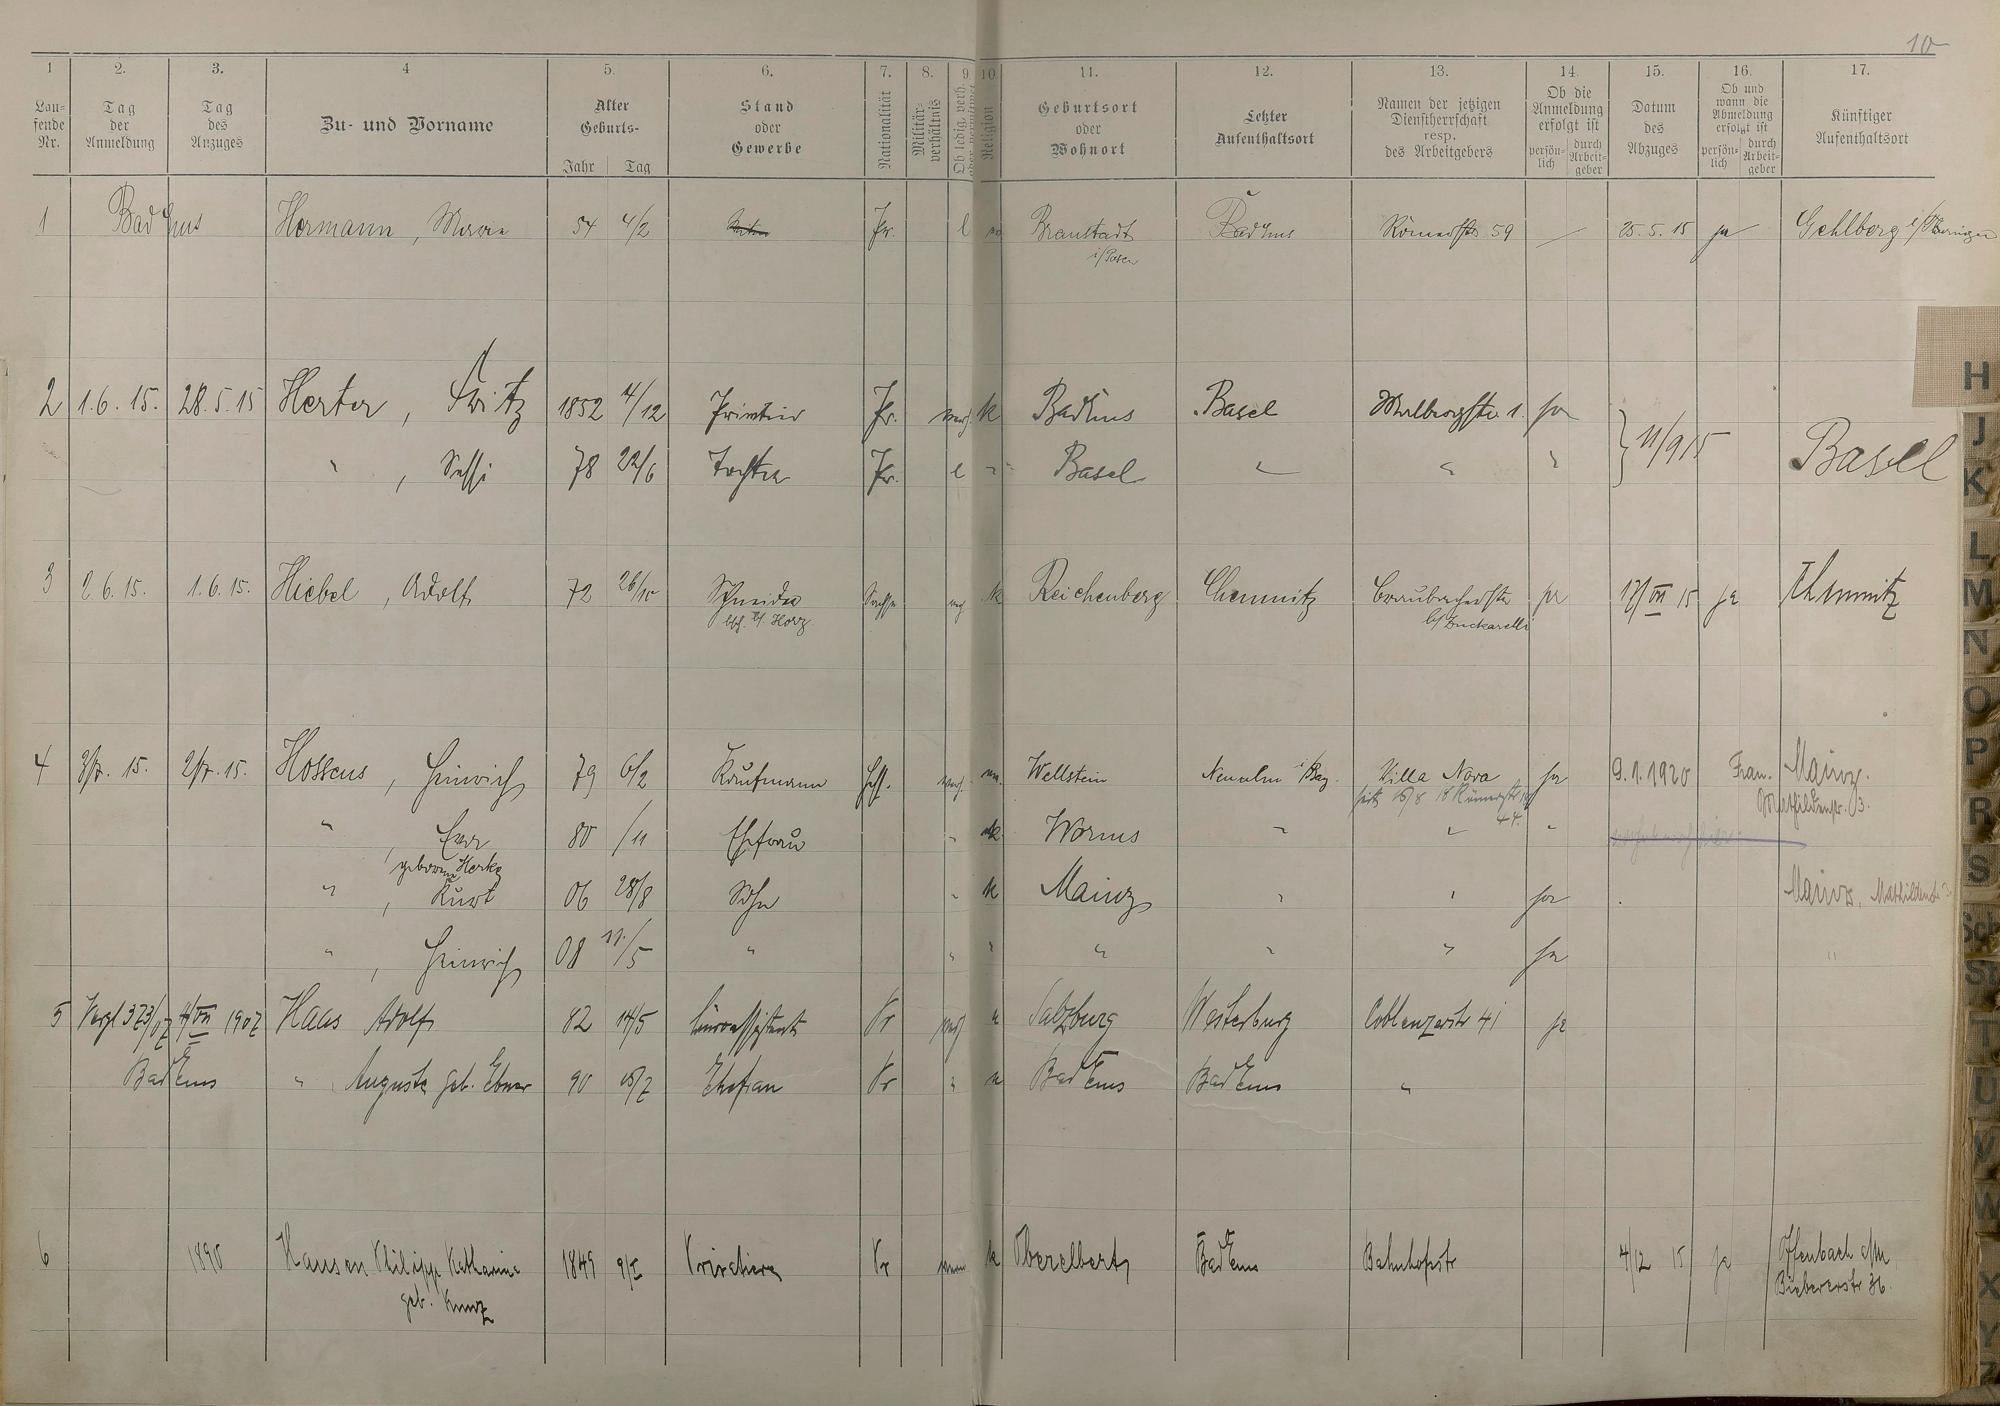 10
1 2. 3. 4 5. 6. 7. 8. 9 10 11. 12. 13. 14. 15. 16. 17.
Lau-
fende
Nr.
Tag
der
Anmeldung
Tag
des
Anzuges
Zu- und Vorname
Alter
Geburts-
Jahr Tag
Stand
oder
Gewerbe
Nationalität
Militär-
verhältnis
Ob ledig, verh.
Religion
Geburtsort
oder
Wohnort
Letzter
Aufenthaltsort
Namen der jetzigen
Dienstherrschaft
resp.
des Arbeitgebers
Ob die
Anmeldung
erfolgt ist
persön-
lich
durch
Arbeit-
geber
Datum
des
Abzuges
Ob und
wann die
Abmeldung
erfolgt ist
persön-
lich
durch
Arbeit-
geber
Künftiger
Aufenthaltsort
1 Bad Ems Hermann, 54 4/2 Pr. l Braustadt Bad Ems Römerstr. 59 — 25.5.15 ja Gehlberg i/Thüringen
i/Posen
2 1.6.15. 28.5.15 Herter, Fritz 1852 4/12 Privatier Pr. verh. k Bad Ems Basel 1. ja } 11/9 15 Basel
" , 78 22/6 Tochter Pr. l " Basel " " "
3 2.6.15. 1.6.15. Hiebel, Adolf 72 26/10 Schneider Sachse k Reichenberg Chemnitz Braubacherstr ja 17/VII 15 ja Chemnitz
b/ Zuckarelli
4 3/7. 15. 2/7. 15. Hosseus, Heinrich 79 6/2 Kaufmann Hess. verh. Wellstein Neuulm i/Bay. Villa Nova ja 9.1.1920 Fran. Mainz.
44. 3.
" , Eva 80 /11 Ehefrau " k Worms " " "
geborene
" , Kurt 06 28/8 Sohn " k Mainz " " ja Mainz, Mathildenstr 3
" , Heinrich 08 11./5 " " " " " " ja "
5 Vergl 373/07 1907 Haas Adolf 82 14/5 Büroassistent Pr verh Salzburg Westerburg Coblenzerstr 41 ja
Bad Ems " Auguste geb. Ebner 90 Ehefrau Pr " Bad Ems Bad Ems "
6 1890 Hansen Philipp Katharina 1849 Pr k Oberelbert Bad Ems Bahnhofstr 4/12 15 ja Offenbach a/M
geb. Kunz Biebererstr 36.
H
J
K
L
M
N
O
P
R
S
Sch
St
T
U
V
W
X
Y
Z